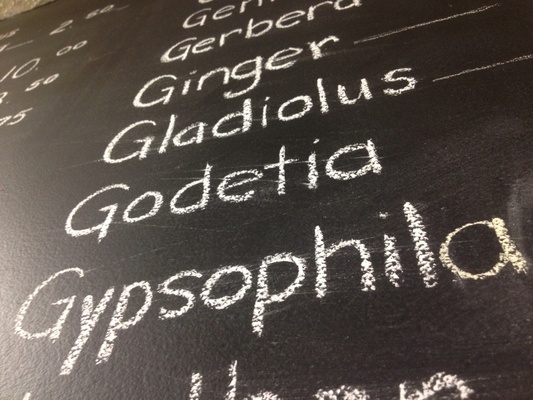 2.50
Gerbera
10.00
Ginger
50
Gladiolus
75
Godetia
Gypsophila